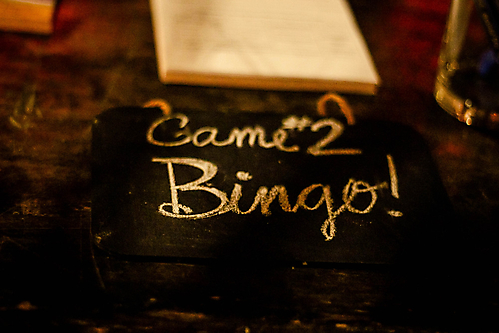 Game #2
Bingo!